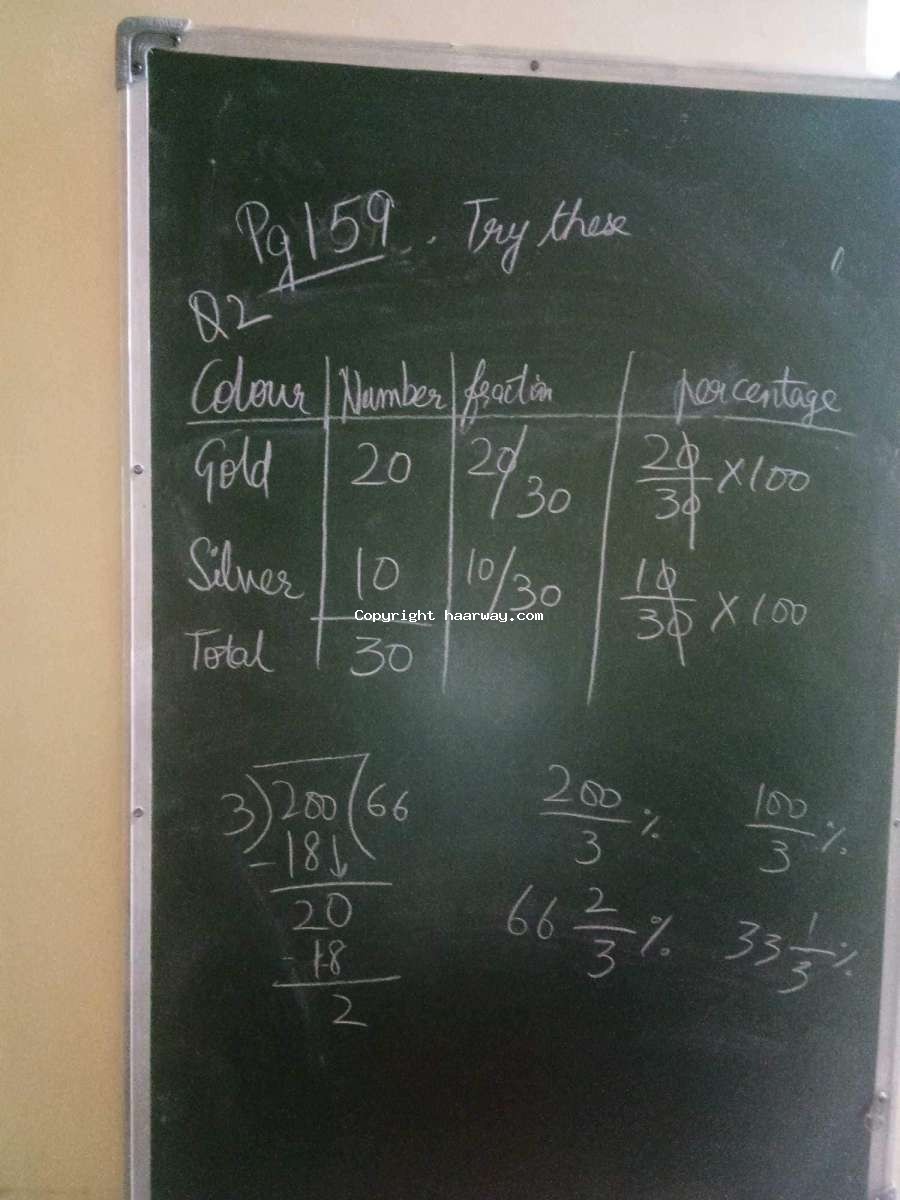 Pg 159. Try these
Q2
Colour | Number | fraction | percentage
Gold | 20 | 20/30 | 20/30 × 100
Silver | 10 | 10/30 | 10/30 × 100
Copyright haarway.com
Total | 30
3)200(66
-18↓
20
-18
2
200/3 %
100/3 %
66 2/3 %
33 1/3 %